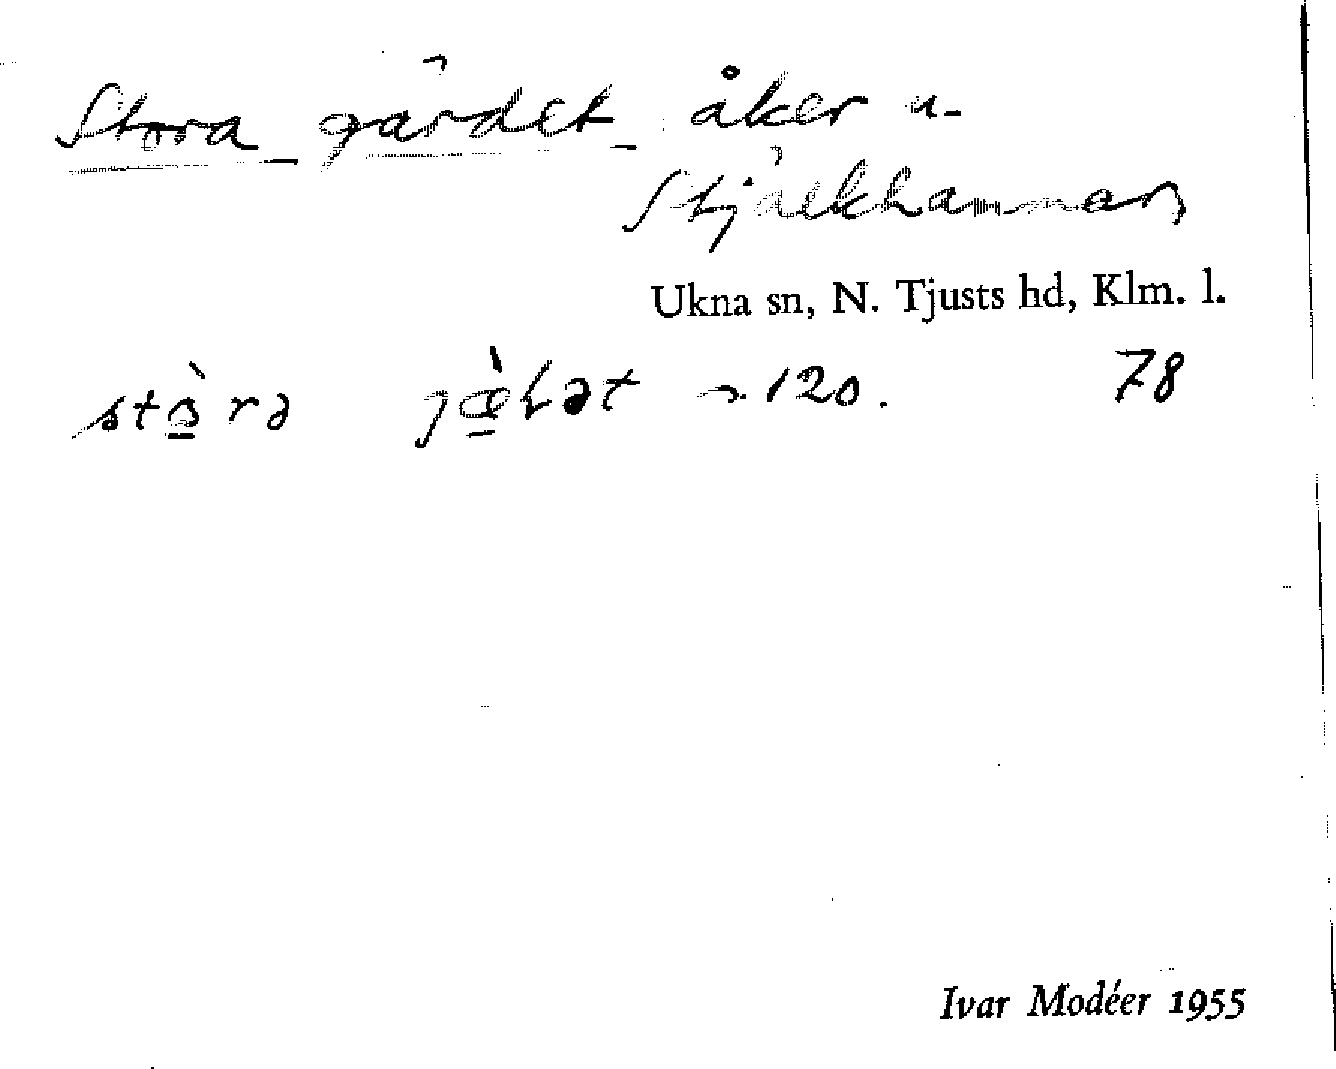 Stora gärdet åker u.
Stjälkhammar
Ukna sn, N. Tjusts hd, Klm. l.
120. 78
Ivar Modéer 1955